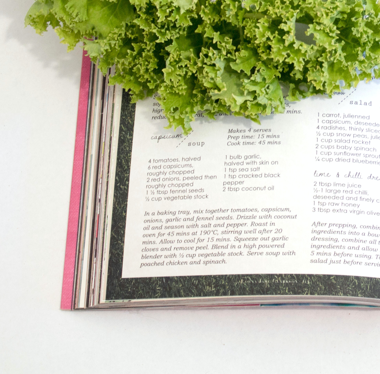 salad
capsicum
soup
Makes 4 serves
Prep time: 15 mins
Cook time: 45 mins
4 tomatoes, halved
6 red capsicums,
roughly chopped
2 red onions, peeled then
roughly chopped
1 ½ tbsp fennel seeds
½ cup vegetable stock
1 bulb garlic,
halved with skin on
1 tsp sea salt
1 tsp cracked black
pepper
2 tbsp coconut oil
In a baking tray, mix together tomatoes, capsicum,
onions, garlic and fennel seeds. Drizzle with coconut
oil and season with salt and pepper. Roast in
oven for 45 mins at 190°C, stirring well after 20
mins. Allow to cool for 15 mins. Squeeze out garlic
cloves and remove peel. Blend in a high powered
blender with ½ cup vegetable stock. Serve soup with
poached chicken and spinach.
1 carrot, julienned
1 capsicum, deseede
4 radishes, thinly slice
½ cup snow peas, juli
1 cup salad rocket
2 cups baby spinach
1 cup sunflower sprou
¼ cup dried blueberri
lime & chilli dre
2 tbsp lime juice
½-1 large red chilli,
deseeded and finely c
1 tsp raw honey
3 tbsp extra virgin olive
After prepping, combin
ingredients into a bow
dressing, combine all i
ingredients and allow
5 mins before using. T
salad just before servi